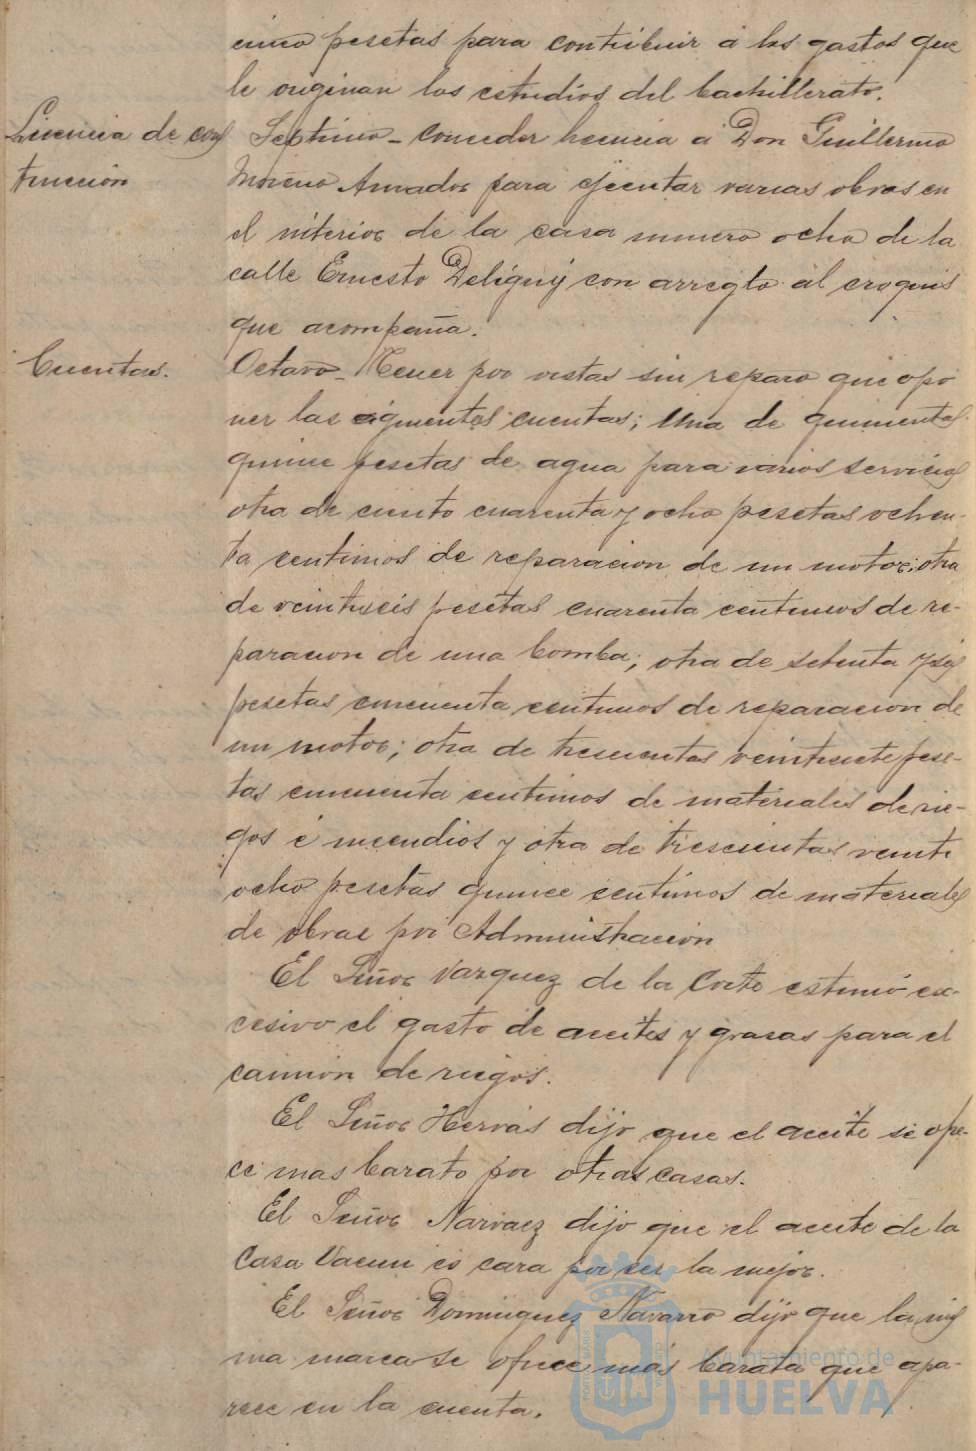 cinco pesetas para contribuir a los gastos que
le originan los estudios del bachillerato.
Licencia de cons
trucción
Septimo - conceder licencia a Don Guillermo
Moreno Amador para ejecutar varias obras en
el interior de la casa numero ocho de la
calle Ernesto Deligny con arreglo al croquis
que acompaña.
Cuentas.
Octavo - Tener por vistas sin reparo que opo
ner las siguientes cuentas; Una de quinientas
quince pesetas de agua para varios servicios
otra de ciento cuarenta y ocho pesetas ochen-
ta centimos de reparacion de un motor; otra
de veintiseis pesetas cuarenta centimos de re-
paracion de una bomba; otra de setenta y seis
pesetas cincuenta centimos de reparacion de
un motor; otra de trescientas veintisiete pese-
tas cincuenta centimos de materiales de rie-
gos é incendios y otra de trescientas veinte
ocho pesetas quince centimos de materiales
de obras por Administracion
El Señor Vazquez de la Corte estimó ex-
cesivo el gasto de aceites y grasas para el
camion de riegos.
El Señor Hervás dijo que el aceite se ofre-
ce mas barato por otras casas.
El Señor Narvaez dijo que el aceite de la
Casa Vacun es cara por ser la mejor.
El Señor Dominguez Navarro dijo que la mis
ma marca se ofrece más barata que apa-
rece en la cuenta.
Ayuntamiento de
HUELVA